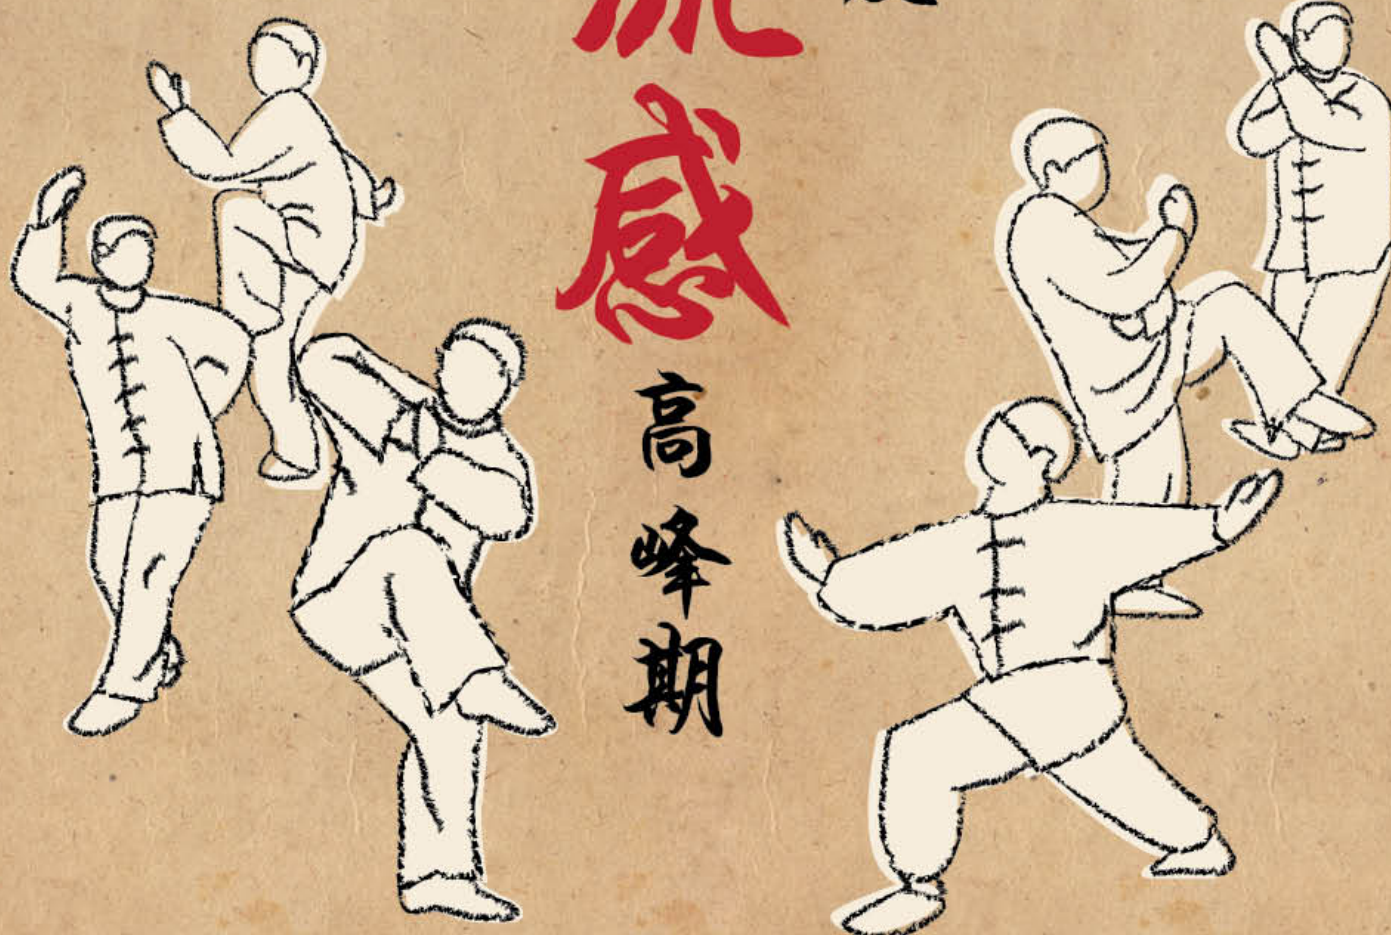 流感高峰期